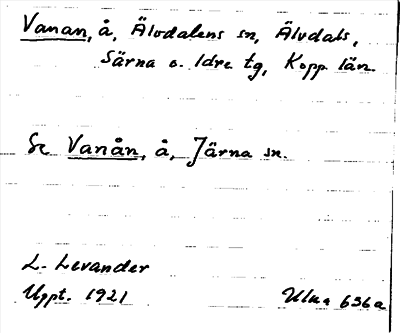 Vanan, å, Älvdalens sn, Älvdals,
Särna o. Idre tg, Kopp. län.
Se Vanån, å, Järna sn.
L. Levander
Uppt. 1921 Ulma 636a